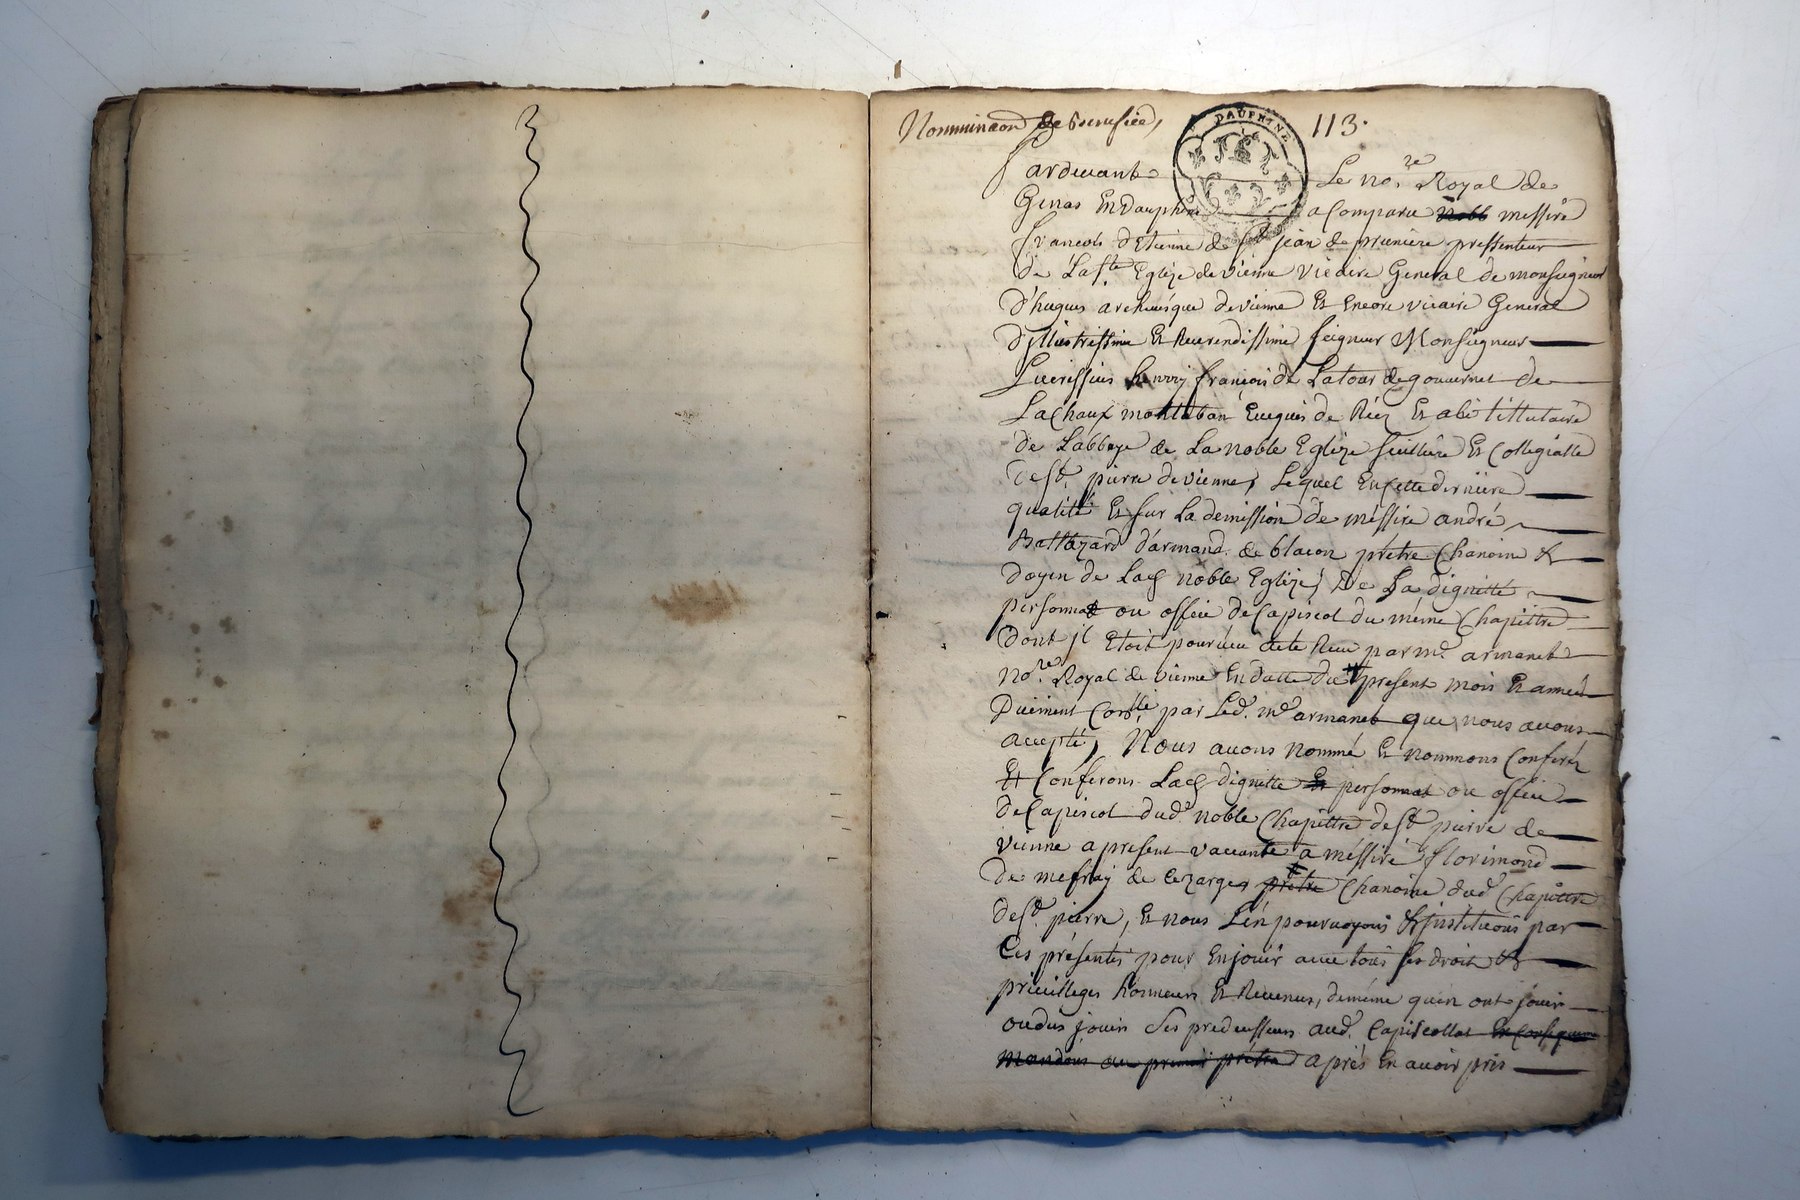 Nominaon de Benefice,
DAUPHINE
113.
Pardevant Le no.re Royal de
Genas En Dauphiné a Comparu messire
françois d'Etienne de St jean de prunière pressenteur
De La Ste Eglize de vienne Vicaire General de monseigneur
D'hugues archeveque de vienne Et Encore vicaire General
D'illustrissime Et Reverendissime seigneur Monseigneur
Lucressius henry françois de Latour de gouvernet de
La Chaux montauban Eveque de Riez Et abé tittulaire
de Labbaye de La noble Eglize Et Collegialle
De St. pierre de vienne, Lequel En cette derniere
qualité Et sur La demission de méssire andré
Baltazard d'armand de blacon prétre Chanoine &
Doyen de Lad noble Eglize, De La dignitté
personnat ou office de Capiscol du méme Chapittre
Dont jl Etoit pourvu Reçu par me. armanet
no.re Royal de vienne En datte du present mois Et année
Duëment par Led. me armanet que nous avons
accepté, Nous avons nommé Et nommons Conferé
Et Conferons Lad dignitté Et personnat ou office
de Capiscol dud. noble Chapittre de St pierre de
vienne a present vaccante a méssire florimond
De mefray de Cezarges prêtre Chanoine dud. Chapittre
de St. pierre, Et nous L'en pourvoyons & jnstituons par
Ces présentes pour En jouir avec tous ses droits &
privilleges honneurs Et Revenus, de méme qu'en ont joui
ou dus jouir Ses predecesseurs aud. Capiscollat En Consequence
Mandons au premier prêtre aprés En avoir pris